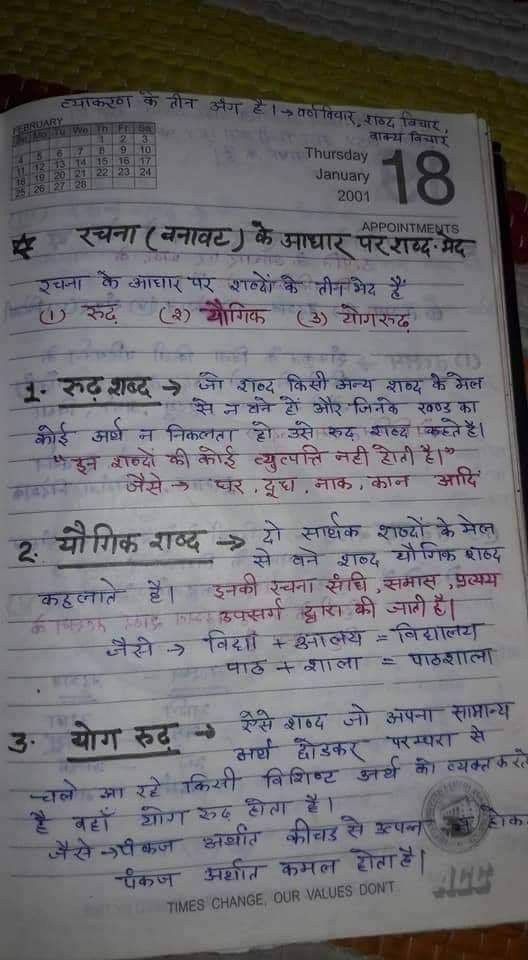 व्याकरण के तीन अंग है। → वर्ण विचार, शब्द विचार,
वाक्य विचार
FEBRUARY
Su Mo Tu We Th Fr Sa
1 2 3
4 5 6 7 8 9 10
11 12 13 14 15 16 17
18 19 20 21 22 23 24
25 26 27 28
Thursday
January
2001
18
APPOINTMENTS
रचना (बनावट) के आधार पर शब्द-भेद
रचना के आधार पर शब्दों के तीन भेद हैं
(1) रूढ़ (2) यौगिक (3) योगरूढ़
1. रूढ़ शब्द → जो शब्द किसी अन्य शब्द के मेल
से न बने हों और जिनके खण्ड का
कोई अर्थ न निकलता हो उसे रूढ शब्द कहते है।
"इन शब्दों की कोई व्युत्पत्ति नही होती है।"
जैसे → घर, दूध, नाक, कान आदि
2. यौगिक शब्द → दो सार्थक शब्दों के मेल
से बने शब्द यौगिक शब्द
कहलाते है। इनकी रचना संधि, समास, प्रत्यय
उपसर्ग द्वारा की जाती है।
जैसे → विद्या + आलय = विद्यालय
पाठ + शाला = पाठशाला
3. योग रूढ़ → ऐसे शब्द जो अपना सामान्य
अर्थ छोडकर परम्परा से
चले आ रहे किसी विशिष्ट अर्थ को व्यक्त करते
है वहाँ योग रूढ होता है।
जैसे → पंकज अर्थात कीचड से उत्पन्न होक
पंकज अर्थात कमल होता है।
ACC
TIMES CHANGE, OUR VALUES DON'T.